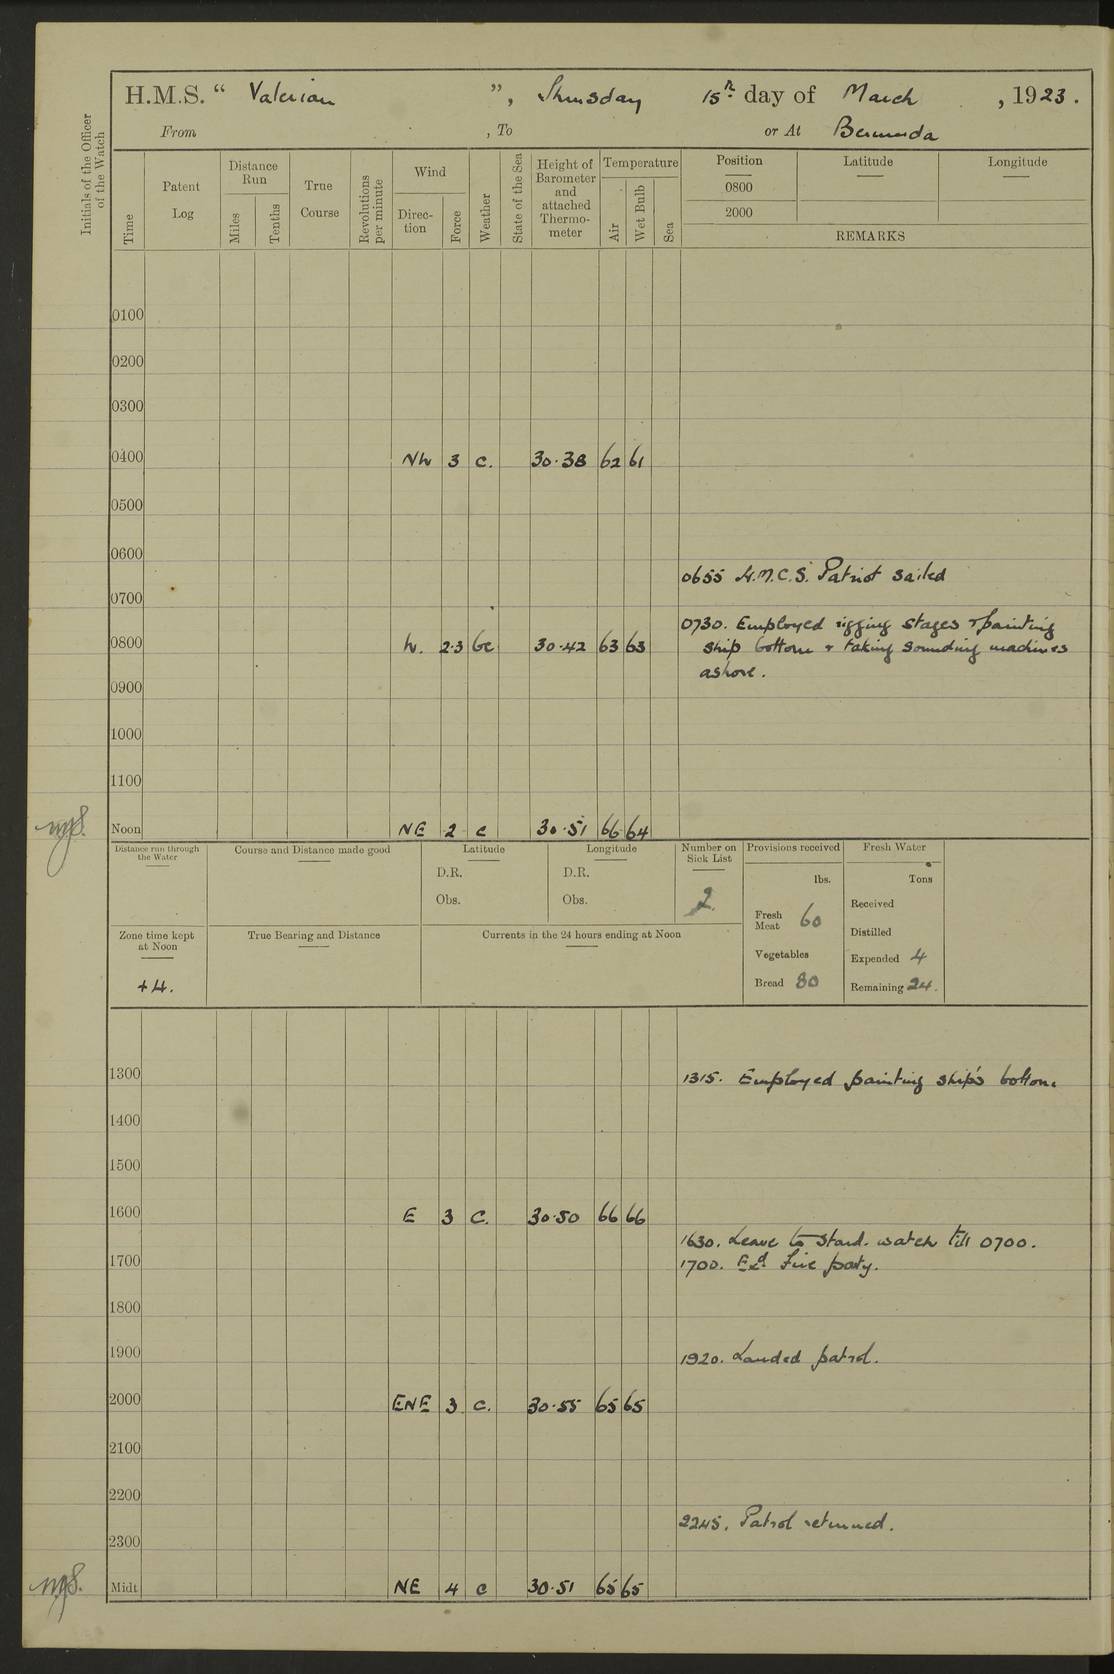 H.M.S. “ Valerian ”, Thursday 15th day of March , 1923.
From , To or At Bermuda
Initials of the Officer of the Watch
Time
Patent Log
Distance Run
Miles
Tenths
True Course
Revolutions per minute
Wind
Direc-tion
Force
Weather
State of the Sea
Height of Barometer and attached Thermo-meter
Temperature
Air
Wet Bulb
Sea
Position Latitude Longitude
0800
2000
REMARKS
0100
0200
0300
0400 NW 3 c. 30.38 62 61
0500
0600
0655 H.M.C.S. Patriot sailed
0700
0730. Employed rigging stages & painting
0800 W. 2.3 bc 30.42 63 63 ship bottom & taking sounding machines
ashore.
0900
1000
1100
Noon NE 2 c 30.51 66 64
Distance run through the Water
Course and Distance made good
Latitude
D.R.
Obs.
Longitude
D.R.
Obs.
Number on Sick List
2
Provisions received
lbs.
Fresh Meat 60
Vegetables
Bread 80
Fresh Water
Tons
Received
Distilled
Expended 4
Remaining 24.
Zone time kept at Noon
+4.
True Bearing and Distance
Currents in the 24 hours ending at Noon
1300 1315. Employed painting ship's bottom
1400
1500
1600 E 3 C. 30.50 66 66
1630. Leave to Stard. watch till 0700.
1700 1700. Exd. Fire party.
1800
1900 1920. Landed patrol.
2000 ENE 3 c. 30.55 65 65
2100
2200
2245. Patrol returned.
2300
Midt NE 4 c 30.51 65 65